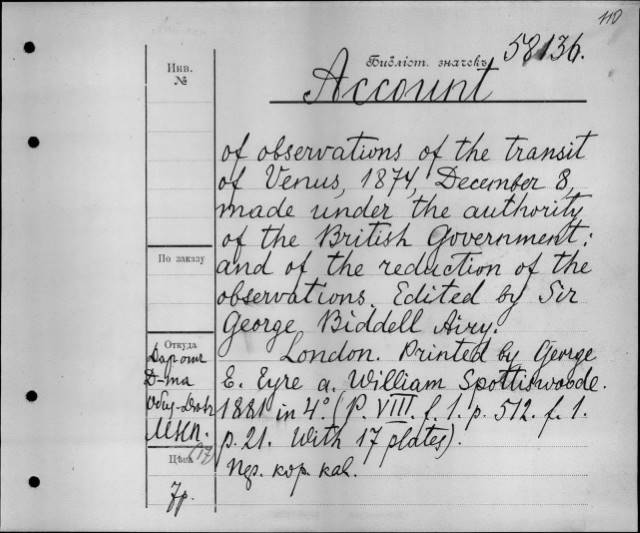 110
Библіст. значекъ 58136.
Account
of observations of the transit
of Venus, 1874, December 8,
made under the authority
of the British Government:
and of the reduction of the
observations. Edited by Sir
George Biddell Airy.
London. Printed by George
E. Eyre a. William Spottiswoode.
1881 in 4°. (P. VIII. f. 1. p. 512. f. 1.
p. 21. With 17 plates).
кор. каl.
Инв.
№
По заказу
Откуда
Дар отъ
Д-та
МНП.
Цѣна
7р.